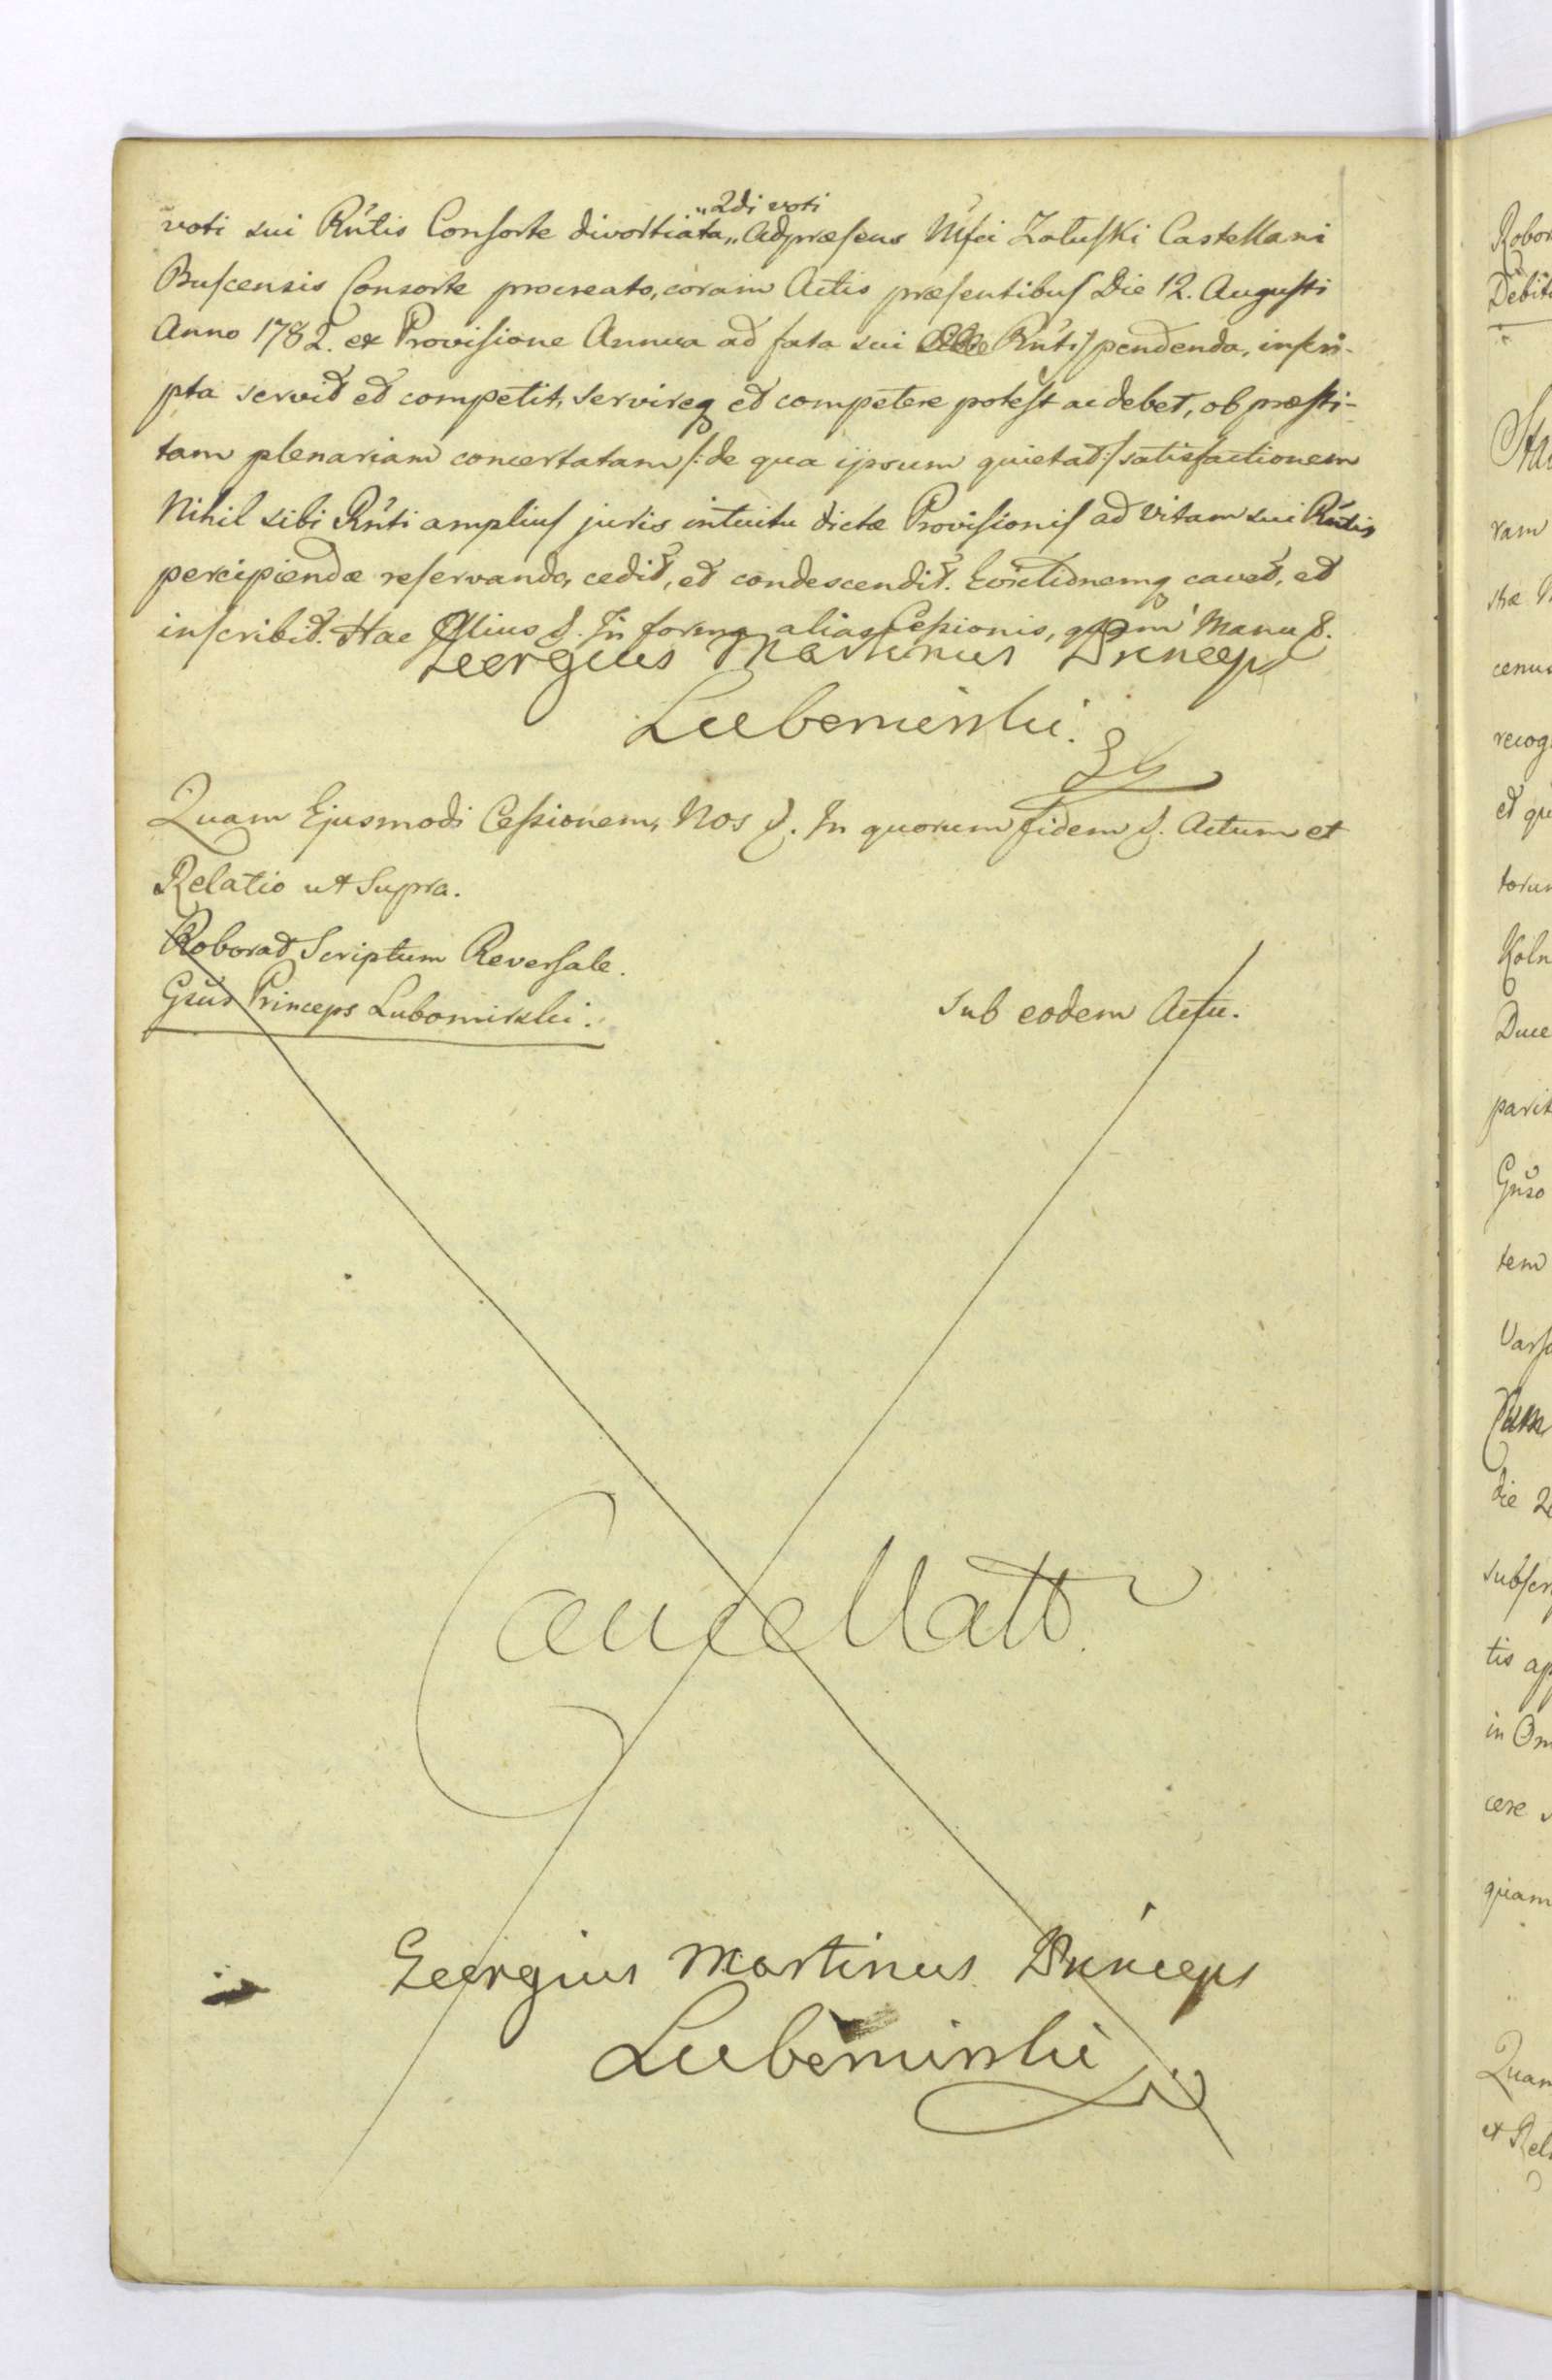 voti sui Rńtis Consorte divortiata „2di voti„ Adpræsens Mfci Załuski Castellani
Buscensis Consorte procreato, coram Actis præsentibus Die 12. Augusti
Anno 1782. ex Provisione Annua ad fata sui Rńtis pendenda, inscri-
pta servit et competit, servireq et competere potest ac debet, ob præsti-
tam plenariam concertatam /: de qua ipsum quietat :/ satisfactionem
Nihil sibi Rńti amplius juris intuitu dictæ Provisionis ad vitam sui Rńtis
percipiendæ reservando, cedit, et condescendit. Evictionemq cavet, et
inscribit. Hac In forma alias Cessionis, Manu
Georgius Martinus Princeps
Lubomirski.
Quam Ejusmodi Cessionem, Nos In quorum fidem Actum et
Relatio ut Supra.
Roborat Scriptum Reversale.
Gsus Princeps Lubomirski.
Sub eodem Actu.
Cancellatt
Georgius Martinus Princeps
Lubomirski
Debit
ram
cenus
recog
et qu
torum
Koln
Duce
parit
Gnso
tem
Vars
die 2
subscr
tis ap
in Om
cere
quam
Quam
et Rel